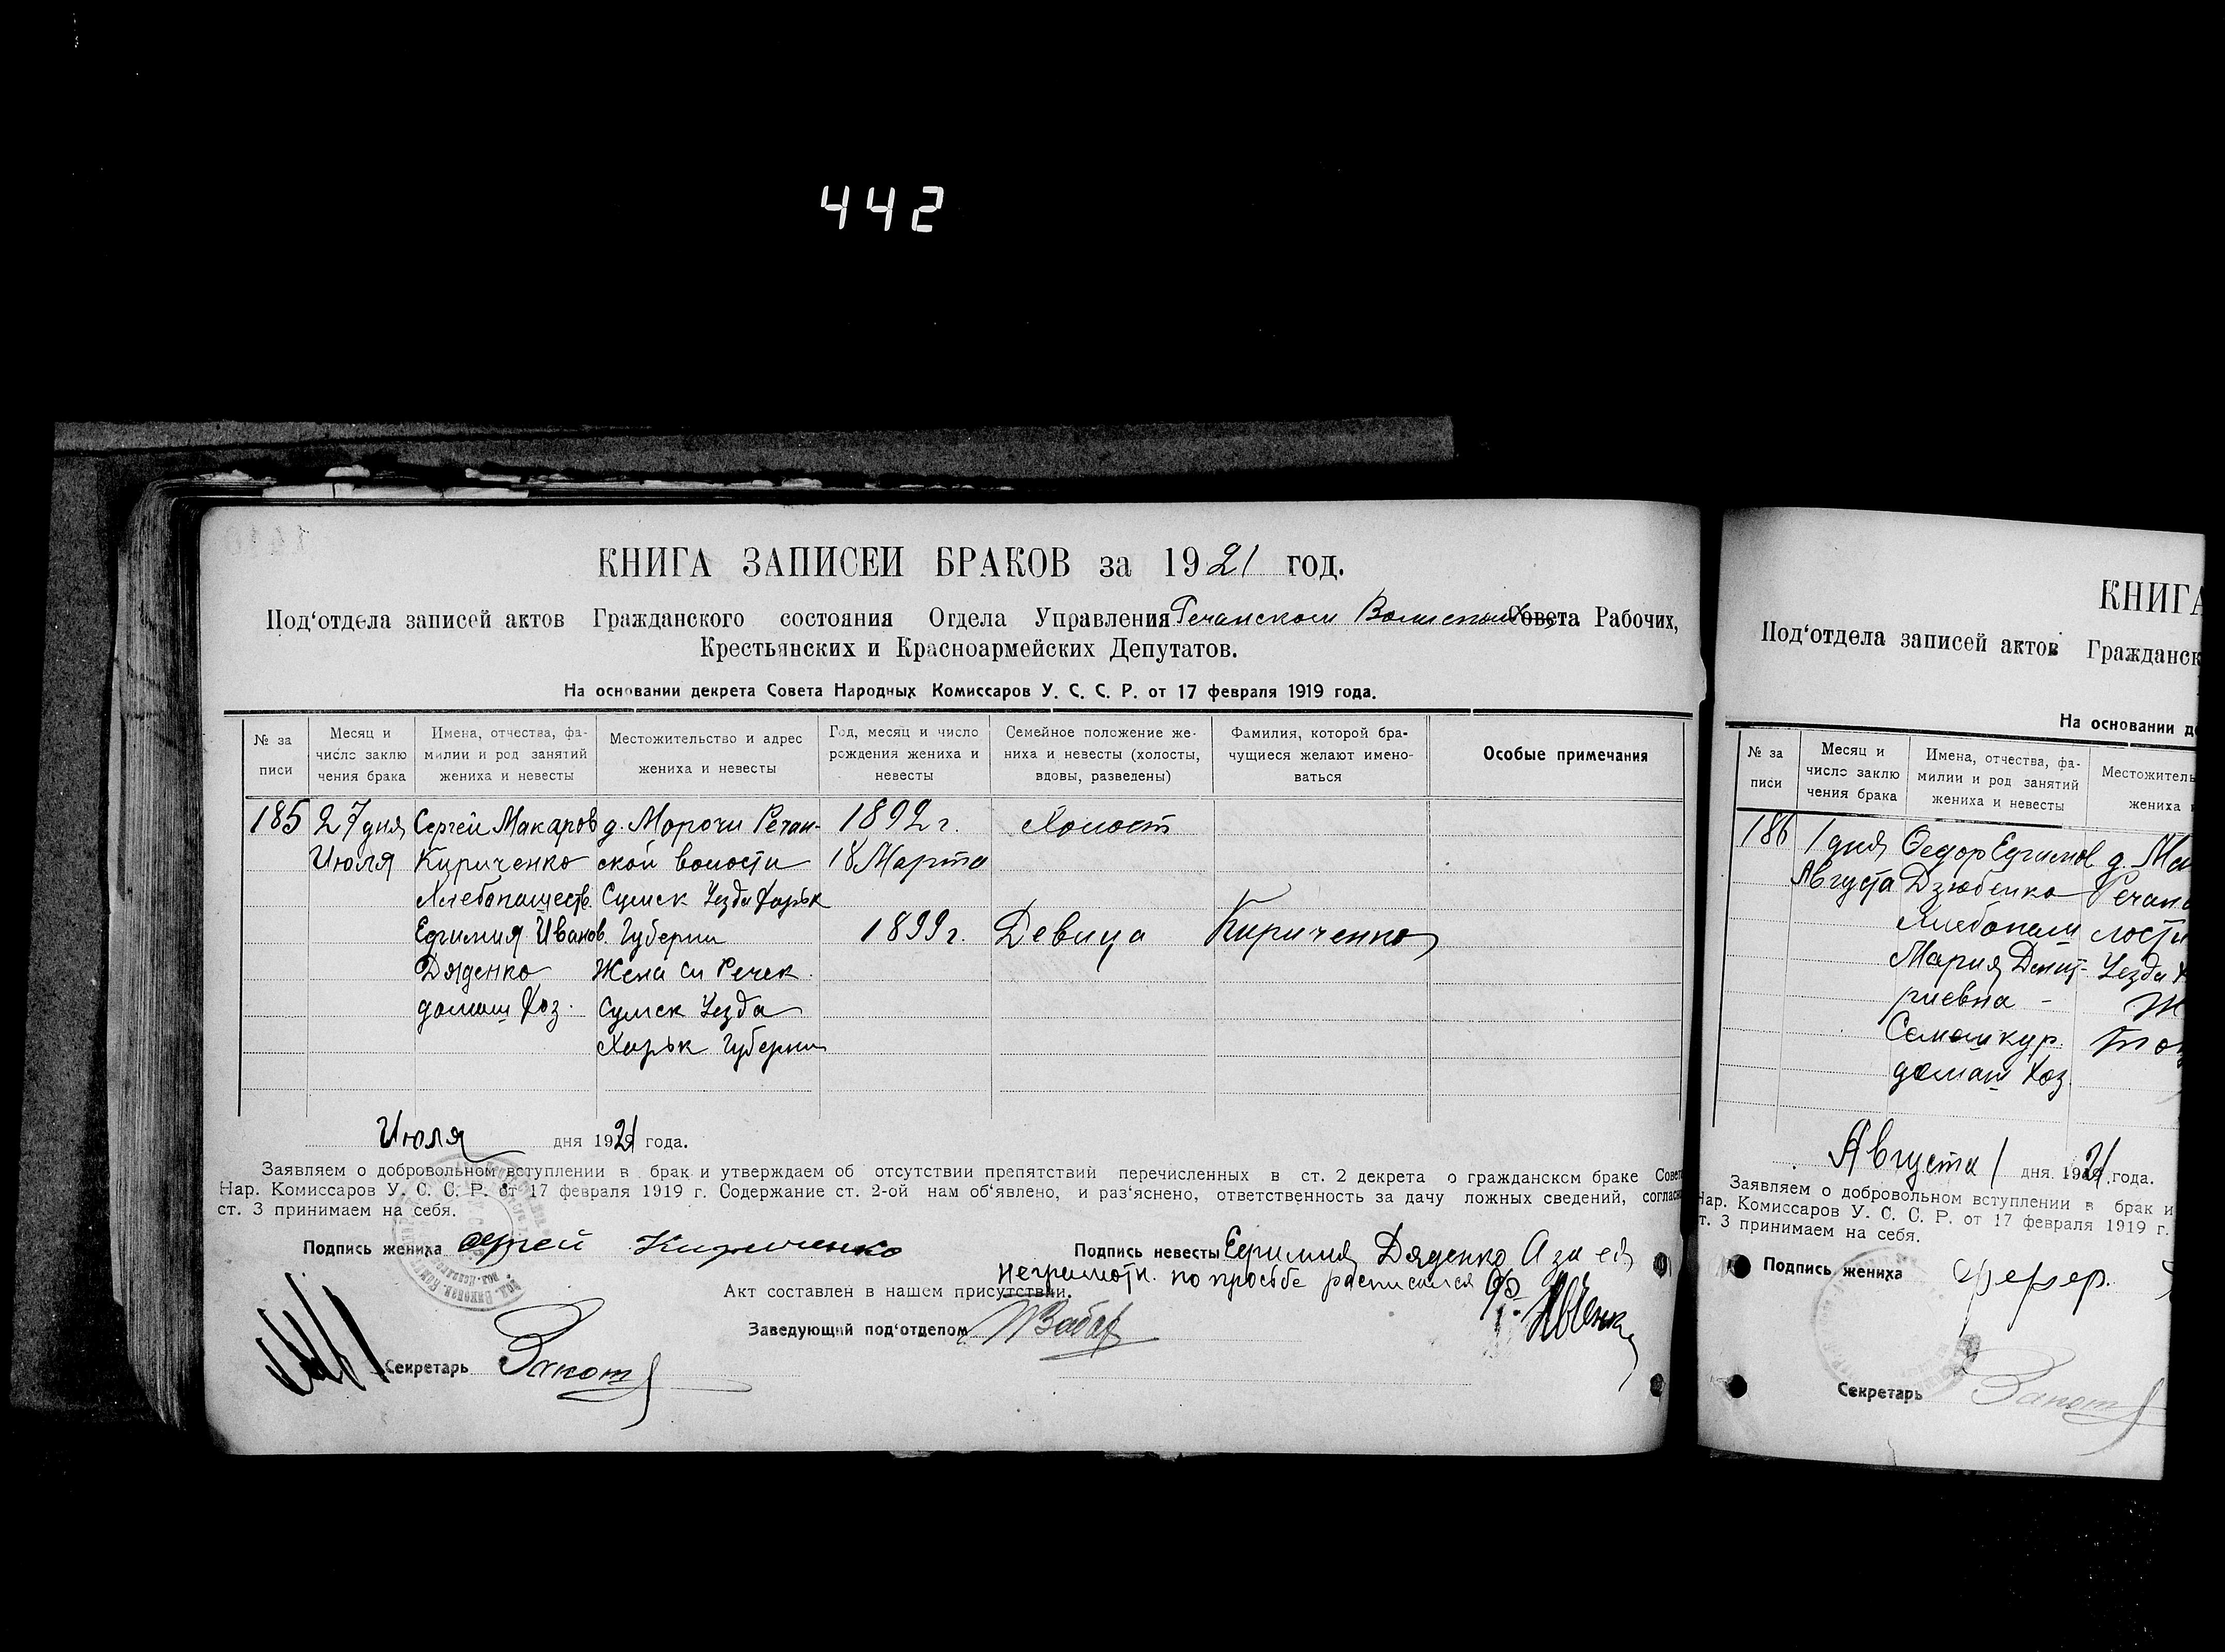 442
КНИГА ЗАПИСЕЙ БРАКОВ за 1921 год.
Под‘отдела записей актов Гражданского состояния Отдела Управления Речанском Совета Рабочих,
Крестьянских и Красноармейских Депутатов.
На основании декрета Совета Народных Комиссаров У. С. С. Р. от 17 февраля 1919 года.
№ за писи
Месяц и число заклю чения брака
Имена, отчества, фа- милии и род занятий жениха и невесты
Местожительство и адрес жениха и невесты
Год, месяц и число рождения жениха и невесты
Семейное положение же- ниха и невесты (холосты, вдовы, разведены)
Фамилия, которой бра- чущиеся желают имено- ваться
Особые примечания
185 27 дня Сергей Макаров д. Морочи Речан- 1892 г. Холост
Июля Кириченко ской волости 18 Марта
Хлебопашеств. Сумск Уезда Харьк
Ефимия Иванов. Губернии 1899 г. Девица Кириченко
Дяденко Жена си Речек
домаш Хоз. Сумск Уезда
Харьк Губернии
Июля дня 1921 года.
Заявляем о добровольном вступлении в брак и утверждаем об отсутствии препятствий перечисленных в ст. 2 декрета о гражданском браке Совета
Нар. Комиссаров У. С. С. Р. от 17 февраля 1919 г. Содержание ст. 2-ой нам об‘явлено, и раз‘яснено, ответственность за дачу ложных сведений, согласно
ст. 3 принимаем на себя.
Подпись жениха Сергей Кириченко
Подпись невесты Ефимия Дяденко А за ея
неграмотн. по просьбе расписался
Акт составлен в нашем присутствии.
Заведующий под‘отделом
Секретарь
КНИГА
Под‘отдела записей актов Гражданск
На основании де
№ за писи
Месяц и число заклю чения брака
Имена, отчества, фа- милии и род занятий жениха и невесты
Местожитель жениха и
186 1 дня Федор Ефимов д. Ма
Августа Дзюбенко Речан
Хлебопаш лости
Мария Дмит- Уезда Х
риевна -
Семашкур.
домаш Хоз.
Августа 1 дня 1921 года.
Заявляем о добровольном вступлении в брак и
Нар. Комиссаров У. С. С. Р. от 17 февраля 1919 г.
ст. 3 принимаем на себя.
Подпись жениха
Секретарь